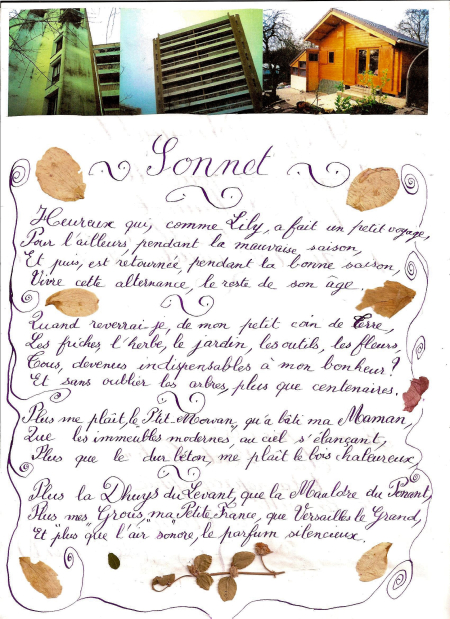 Sonnet
Heureux qui, comme Lily, a fait un petit voyage,
Pour l'ailleurs, pendant la mauvaise saison,
Et puis, est retournée, pendant la bonne saison,
Vivre cette alternance, le reste de son âge.
Quand reverrai-je, de mon petit coin de Terre,
Les friches, l'herbe, le jardin, les outils, les fleurs,
Tous, devenus indispensables à mon bonheur ?
Et sans oublier les arbres, plus que centenaires.
Plus me plaît, le P'tit Morvan, qu'a bâti ma Maman,
Que les immeubles modernes, au ciel s'élançant,
Plus que le dur béton, me plaît le bois chaleureux,
Plus la Dhuys du Levant, que la Mauldre du Ponant,
Plus mes Grous, ma Petite France, que Versailles le Grand,
Et "plus" que l'air "sonore, le parfum silencieux.